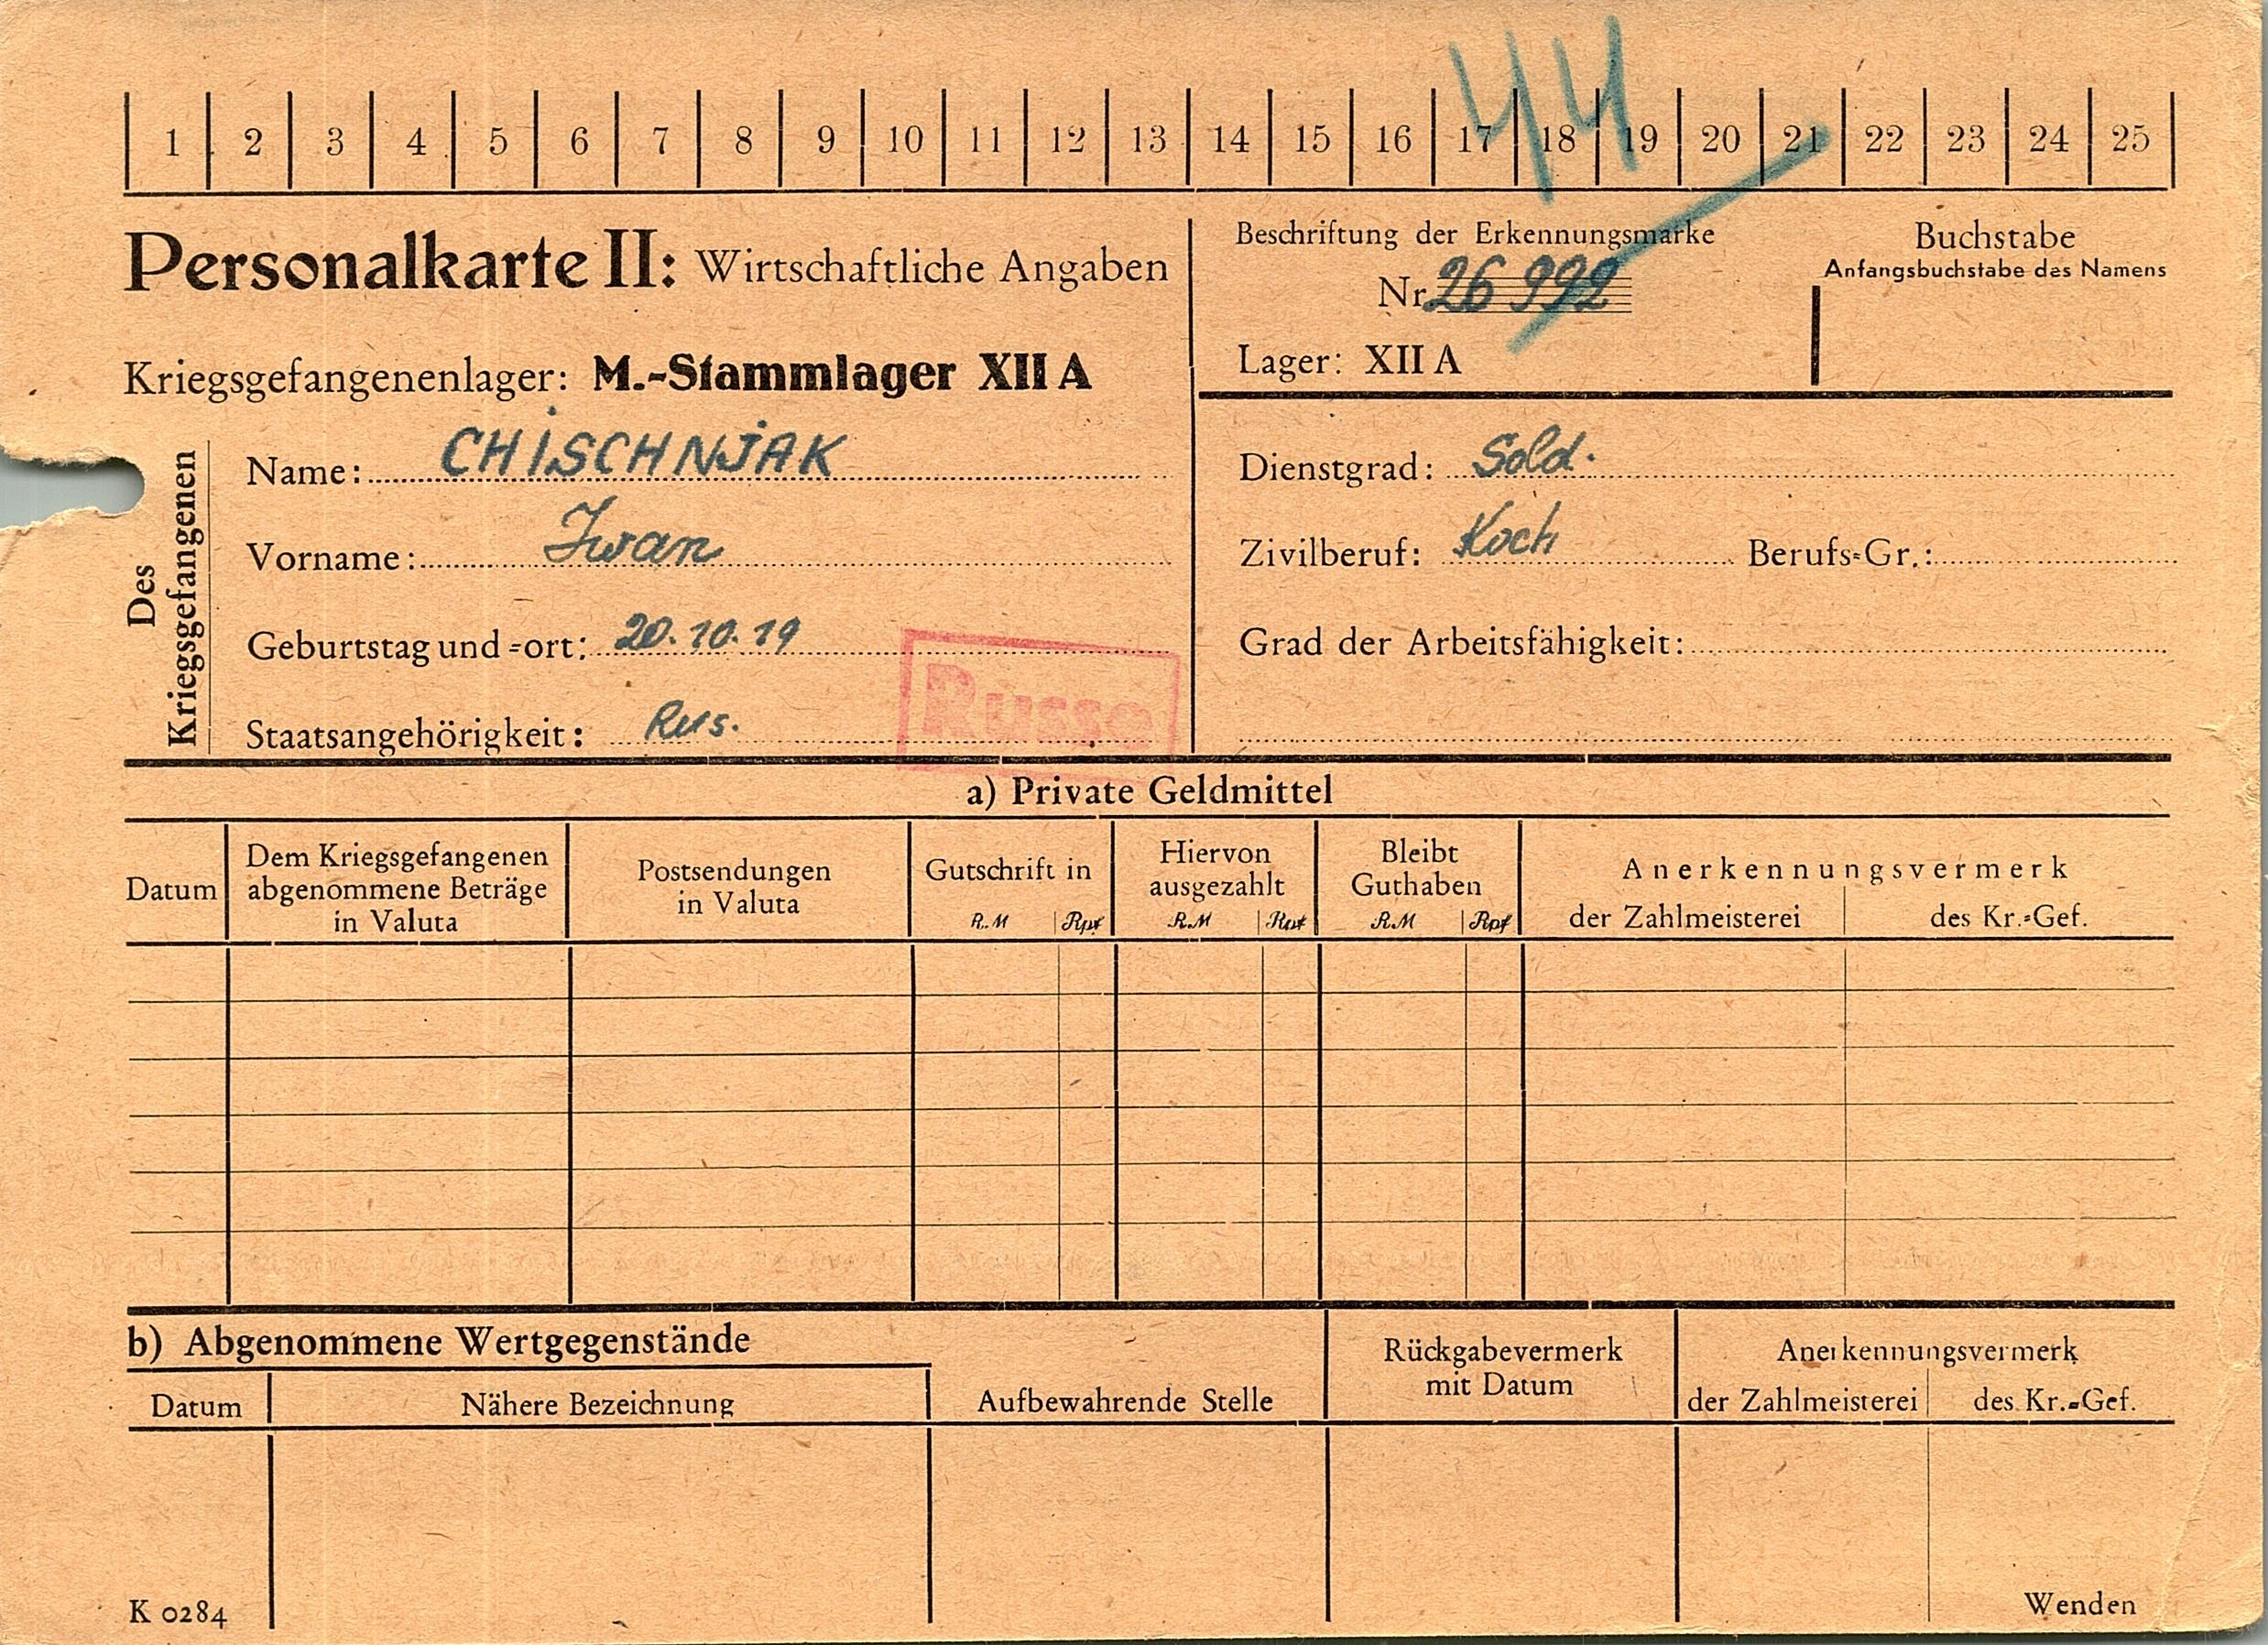 44
1 2 3 4 5 6 7 8 9 10 11 12 13 14 15 16 17 18 19 20 21 22 23 24 25
Personalkarte II: Wirtschaftliche Angaben
Kriegsgefangenenlager: M.-Stammlager XII A
Beschriftung der Erkennungsmarke
Nr. 26 992
Lager: XII A
Buchstabe
Anfangsbuchstabe des Namens
Des
Kriegsgefangenen
Name: CHISCHNJAK
Vorname: Iwan
Geburtstag und -ort: 20.10.19
Staatsangehörigkeit: Rus.
Russe
Dienstgrad: Sold.
Zivilberuf: Koch Berufs-Gr.:
Grad der Arbeitsfähigkeit:
a) Private Geldmittel
Datum
Dem Kriegsgefangenen
abgenommene Beträge
in Valuta
Postsendungen
in Valuta
Gutschrift in
RM Rpf
Hiervon
ausgezahlt
RM Rpf
Bleibt
Guthaben
RM Rpf
Anerkennungsvermerk
der Zahlmeisterei des Kr.-Gef.
b) Abgenommene Wertgegenstände
Datum Nähere Bezeichnung
Aufbewahrende Stelle
Rückgabevermerk
mit Datum
Anerkennungsvermerk
der Zahlmeisterei des Kr.-Gef.
K 0284
Wenden